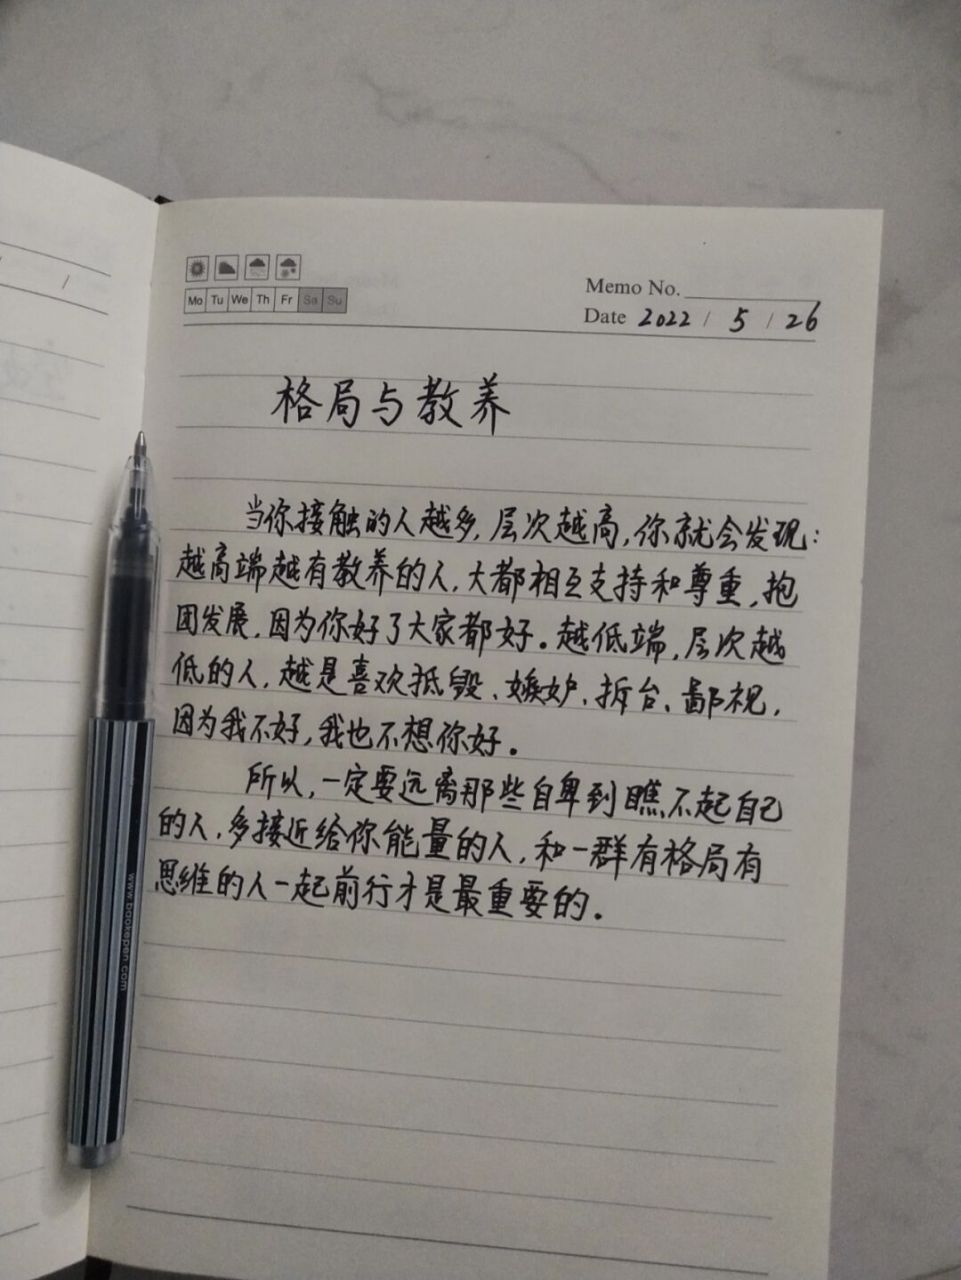 Mo Tu We Th Fr Sa Su
Memo No.
Date 2022 / 5 / 26
格局与教养
当你接触的人越多,层次越高,你就会发现:
越高端越有教养的人,大都相互支持和尊重,抱
团发展,因为你好了大家都好。越低端,层次越
低的人,越是喜欢抵毁、嫉妒、拆台、鄙视,
因为我不好,我也不想你好。
所以,一定要远离那些自卑到瞧不起自己
的人,多接近给你能量的人,和一群有格局有
思维的人一起前行才是最重要的。
/ /
www.baokepen.com